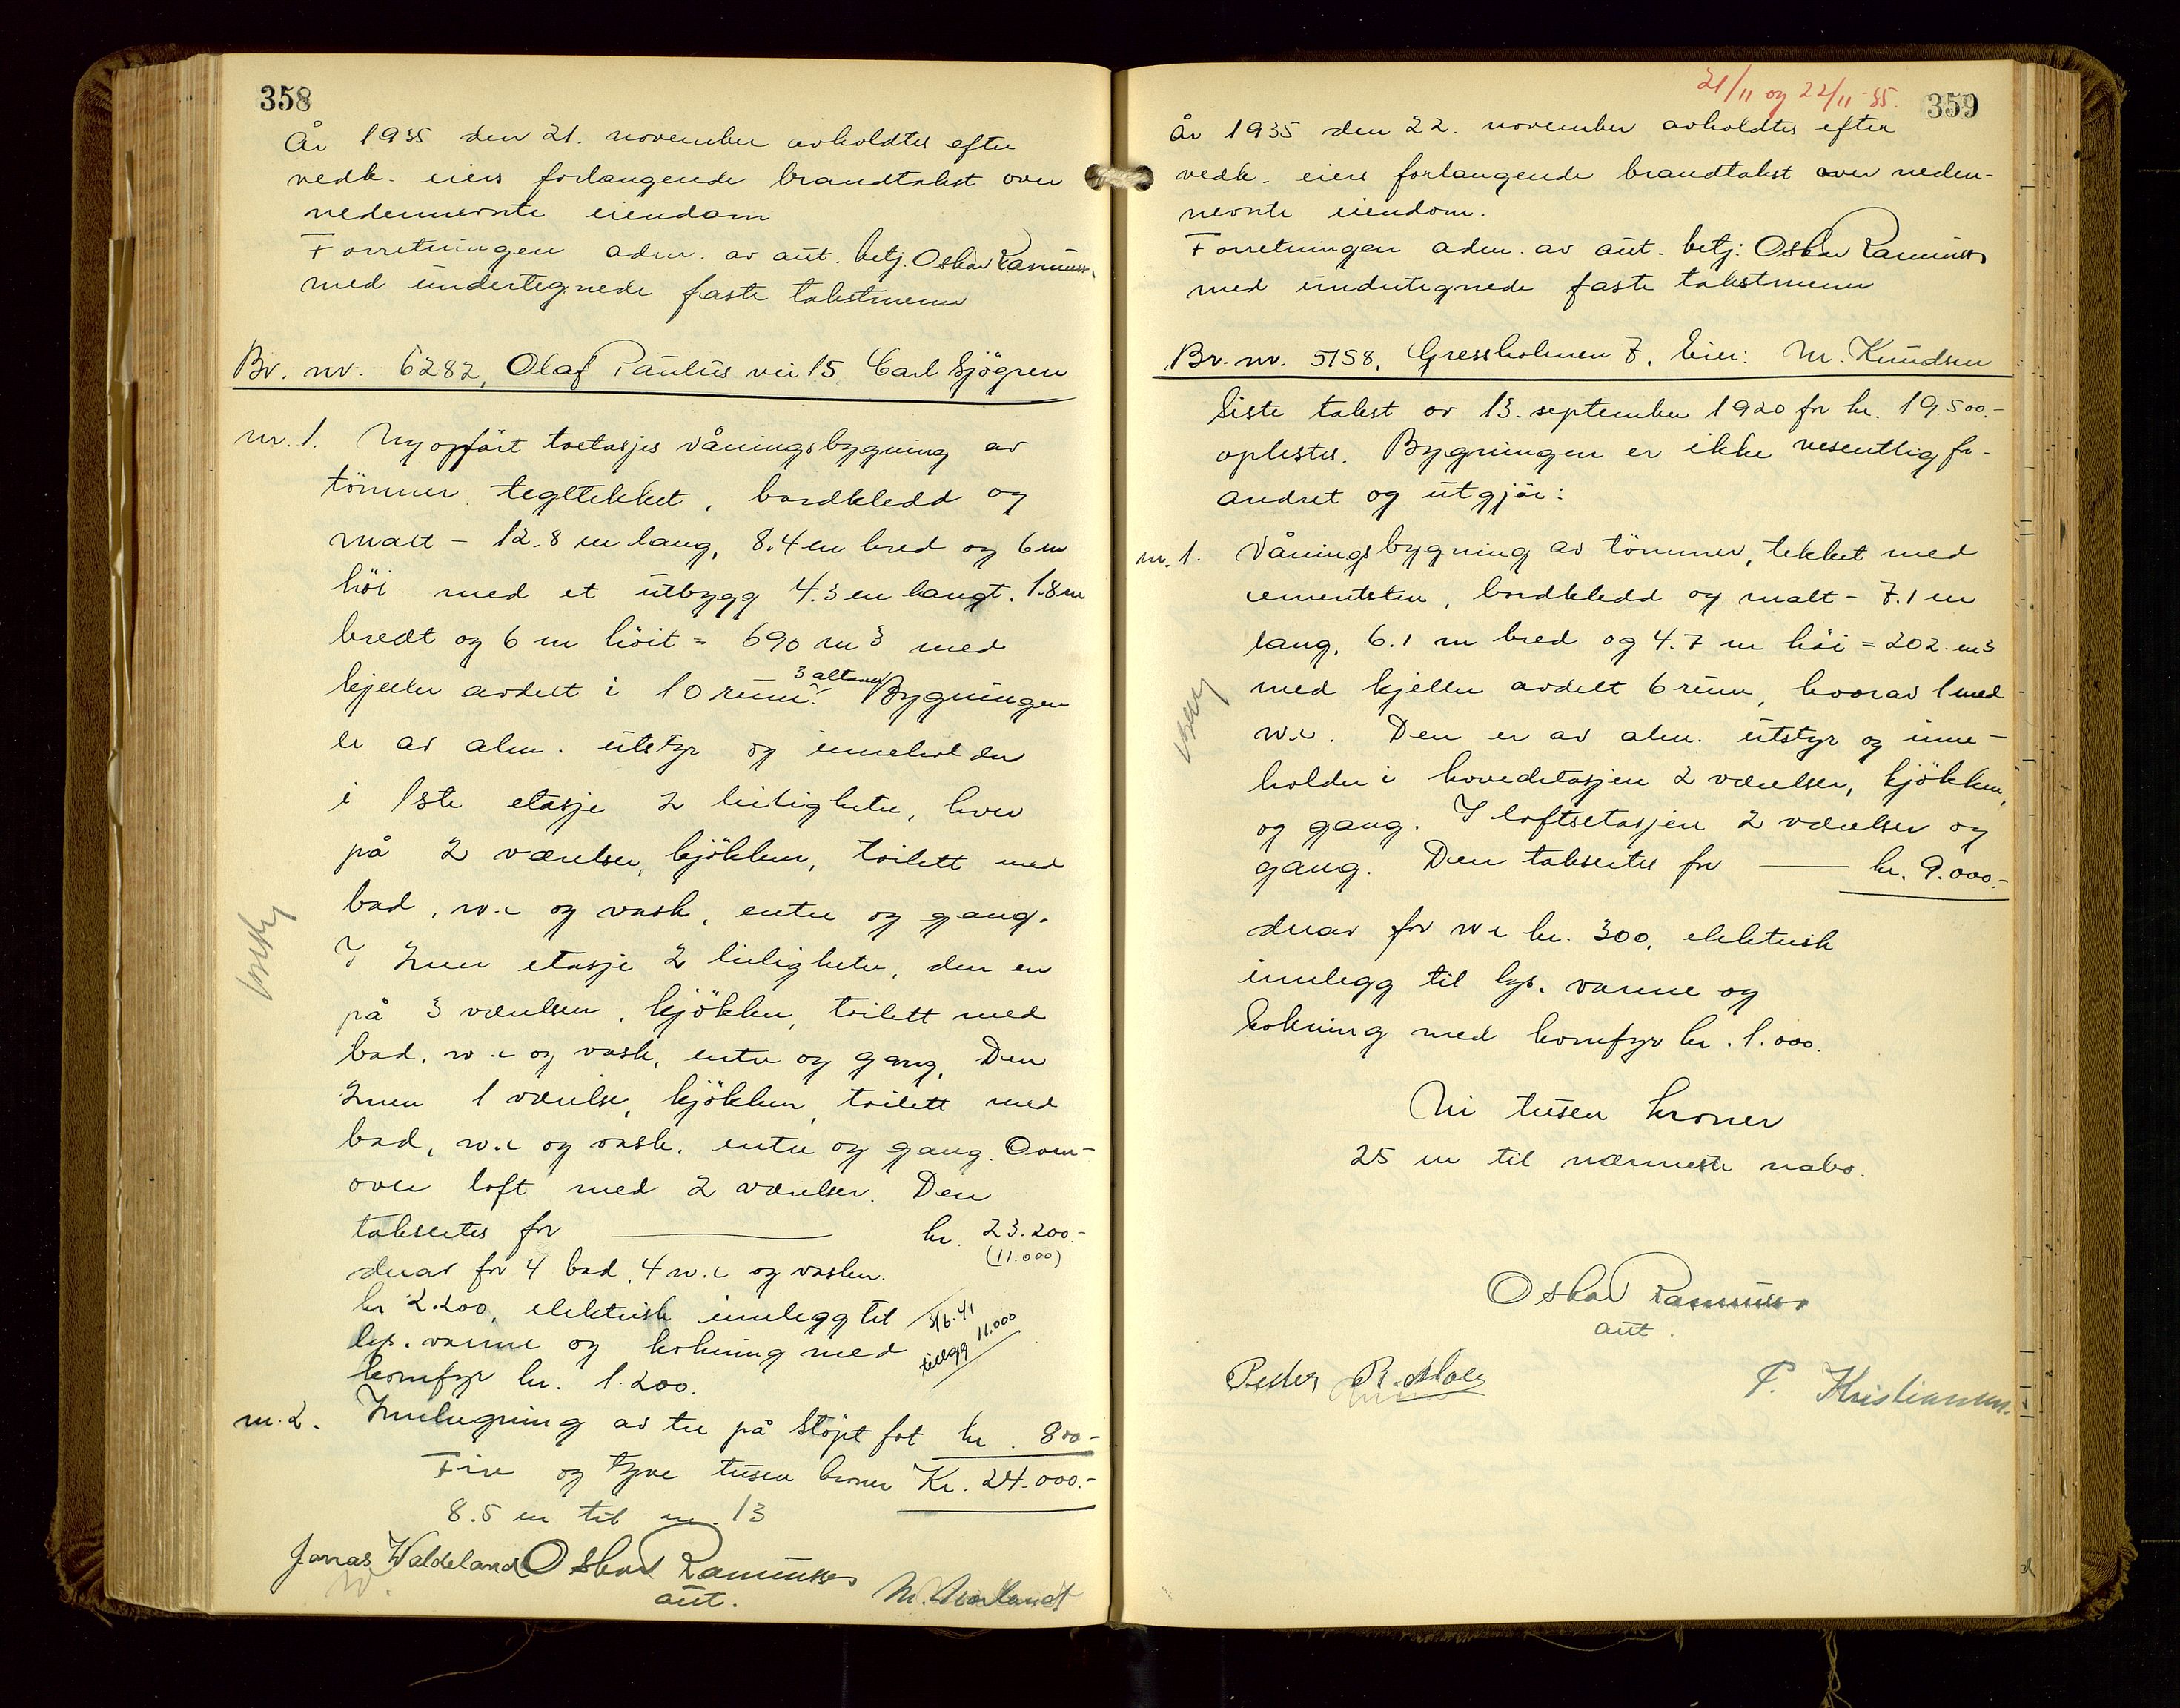 358
År 1935 den 21. november avholdtes efter
vedk. eiers forlangende brandtakst over
nedennevnte eiendom
Forretningen adm. av aut. betj. Oskar Rasmussen
med undertegnede faste takstmenn
Br. nr. 6282, Olaf Paulus vei 15, Carl Sjögren
nr. 1. Nyopført toetasjes våningsbygning av
tömmer, tegltekket, bordkledd og
malt - 12.8 m lang, 8.4 m bred og 6 m
höi med et utbygg 4.3 m langt, 1.8 m
bredt og 6 m höit = 690 m3 med
kjeller avdelt i 10 rum. 3 altaner Bygningen
er av alm. utstyr og inneholder
i 1ste etasje 2 leiligheter, hver
på 2 værelser, kjökken, toilett med
bad, w.c og vask, entre og gang.
I 2nen etasje 2 leiligheter, den en
på 3 værelser, kjökken, toilett med
bad, w.c og vask, entre og gang. Den
2nen 1 værelse, kjökken, toilett med
bad, w.c og vask, entre og gang. Oven-
over loft med 2 værelser. Den
taksertes for kr. 23.200.-
(11.000)
derav for 4 bad, 4 w.c og vasker
kr 2.200, elektrisk innlegg til
lys, varme og kokning med
komfyr kr. 1.200.
3/6.41
tillegg 11.000
nr. 2. Innhegning av tre på stöpt fot kr. 800-
Fire og tyve tusen kroner Kr. 24.000.-
8.5 m til nr. 13
Jonas Waldeland Oskar Rasmussen
aut.
21/11 og 22/11-35.
359
År 1935 den 22. november avholdtes efter
vedk. eiers forlangende brandtakst over neden-
nevnte eiendom.
Forretningen adm. av aut. betj: Oskar Rasmussen
med undertegnede faste takstmenn
Br. nr. 5158, Gressholmen 7, Eier: M. Knudsen
Siste takst av 13. september 1920 for kr. 19.500.-
oplestes. Bygningen er ikke vesentlig for-
andret og utgjör:
nr. 1. Våningsbygning av tömmer, tekket med
cementsten, bordkledd og malt - 7.1 m
lang, 6.1 m bred og 4.7 m höi = 202. m3
med kjeller avdelt 6 rum, hvorav 1 med
w.c. Den er av alm. utstyr og inne-
holder i hovedetasjen 2 værelser, kjökken,
og gang. I loftsetasjen 2 værelser og
gang. Den taksertes for kr. 9.000.-
derav for wc kr. 300, elektrisk
innlegg til lys, varme og
kokning med komfyr kr. 1.000.
Ni tusen kroner
25 m til nærmeste nabo.
Oskar Rasmussen
aut.
Peder R.
P. Kristiansen.